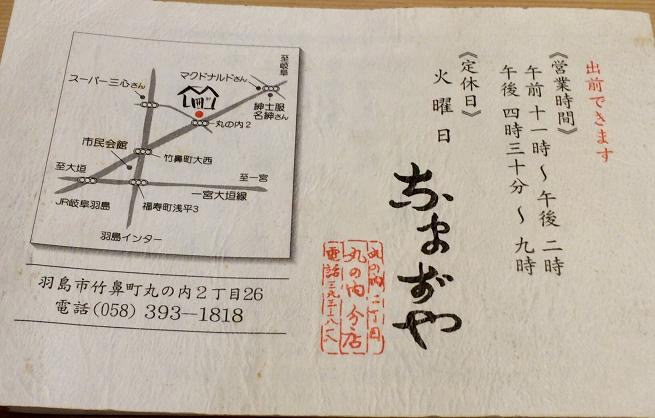 出前できます
《営業時間》
午前 十一時〜午後 二時
午後 四時三十分〜 九時
《定休日》
火曜日
なまずや
丸の内二丁目
丸の内分店
電話三九三-一八一八
至岐阜
マクドナルドさん
スーパー三心さん
紳士服
名紳さん
丸の内2
市民会館
竹鼻町大西
至大垣
至一宮
一宮大垣線
JR岐阜羽島
福寿町浅平3
羽島インター
羽島市竹鼻町丸の内2丁目26
電話(058) 393—1818